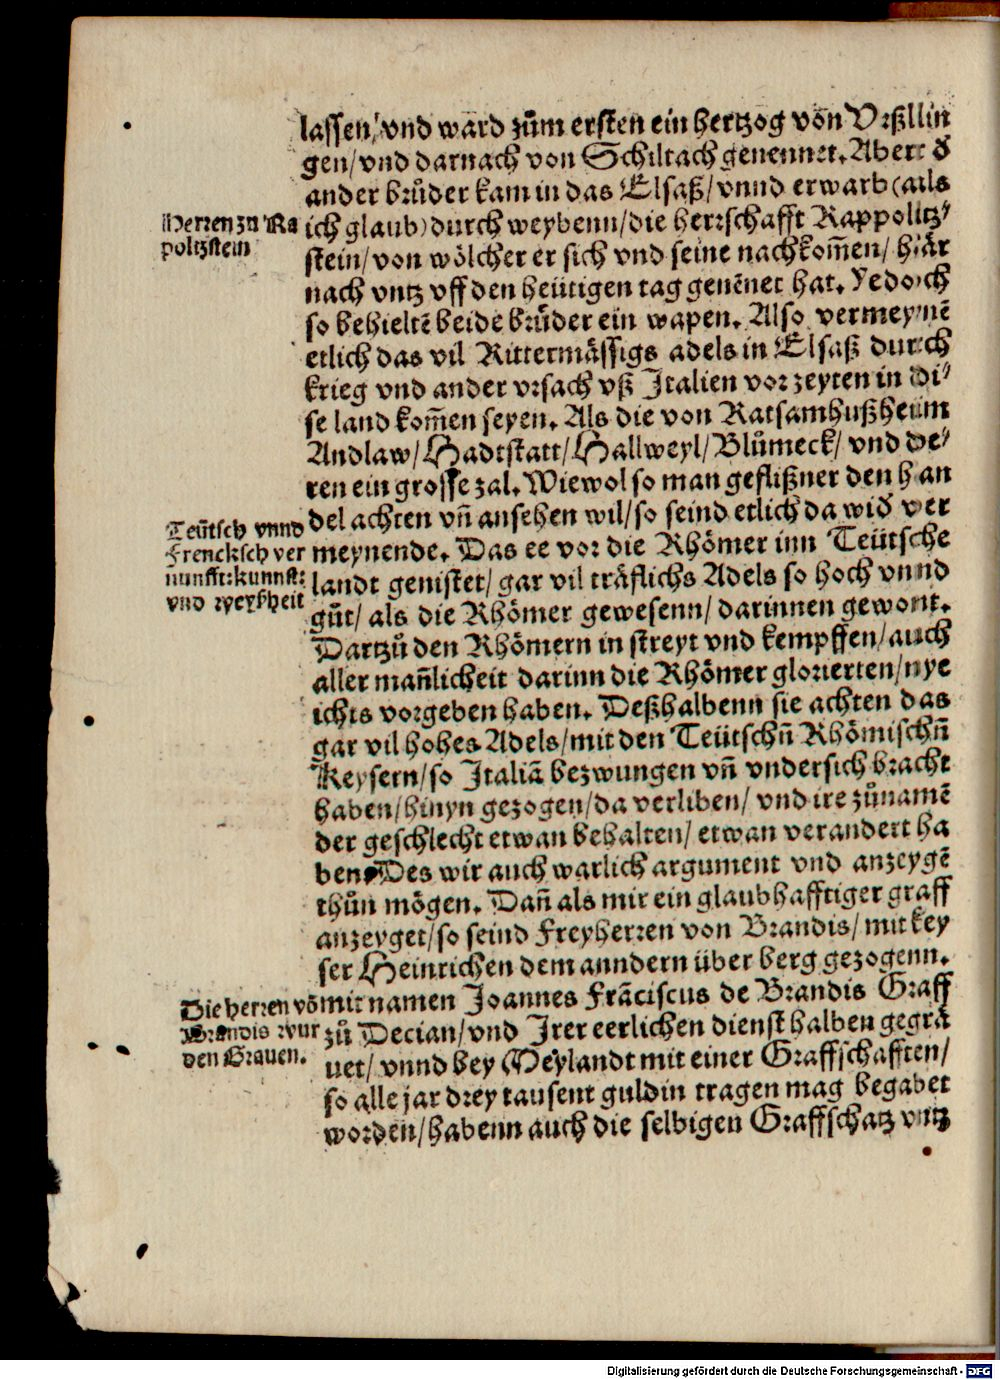 lassen/ vnd ward zům ersten ein hertzog von Vrßllin
gen/ vnd darnach von Schiltach genennet. Aber d̕
ander brůder kam in das Elsaß/ vnnd erwarb (als
Herren zu Ra
poltzstein
ich glaub) durch weybenn/ die herrschafft Rappolitz⸗
stein/ von wölcher er sich vnd seine nachkom̄en/ här
nach vntz vff den heütigen tag genēnet hat. Yedoch
so behieltē beide brůder ein wapen. Also vermeynē
etlich das vil Rittermässigs adels in Elsaß durch
krieg vnd ander vrsach vß Italien vor zeyten in di⸗
se land kom̄en seyen. Als die von Ratsamhußheim
Andlaw/ Hadtstatt/ Hallweyl/ Blůmeck/ vnd de⸗
ren ein grosse zal. Wiewol so man geflißner den han
Teütsch vnnd
Frencksch ver
nunfft: kunnst:
vnd werkheit
del achten vn̄ ansehen wil/ so seind etlich da wid̕ ver
meynende. Das ee vor die Rhömer inn Teütsche
landt genistet/ gar vil träflichs Adels so hoch vnnd
gůt/ als die Rhömer gewesenn/ darinnen gewont.
Dartzů den Rhömern in streyt vnd kempffen/ auch
aller man̄licheit darinn die Rhömer glorierten/ nye
ichts vorgeben haben. Deßhalbenn sie achten das
gar vil hohes Adels/ mit den Teütschn̄ Rhömischn̄
Keysern/ so Italiā bezwungen vn̄ vndersich bracht
haben/ hinyn gezogen/ da verliben/ vnd ire zůnamē
der geschlecht etwan behalten/ etwan verandert ha
ben. Des wir auch warlich argument vnd anzeygē
thůn mögen. Dan̄ als mir ein glaubhafftiger graff
anzeyget/ so seind Freyherren von Brandis/ mit key
ser Heinrichen dem anndern über berg gezogenn.
Die herren vō
Brandis wur
den Grauen.
mit namen Joannes Frāciscus de Brandis Graff
zů Decian/ vnd Irer eerlichen dienst halben gegrā
uet/ vnnd bey Meylandt mit einer Graffschafften/
so alle jar drey tausent guldin tragen mag begabet
worden/ habenn auch die selbigen Graffschatz vntz
Digitalisierung gefördert durch die Deutsche Forschungsgemeinschaft - DFG